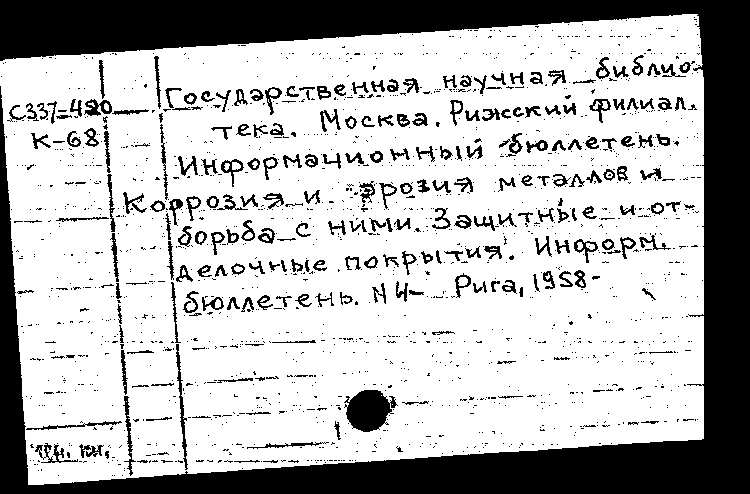 С337-420
К-68
Государственная научная библио-
тека. Москва. Рижский филиал.
Информационный бюллетень.
Коррозия и эрозия металлов и
борьба с ними. Защитные и от-
делочные покрытия. Информ.
бюллетень. N 4- Рига, 1958-